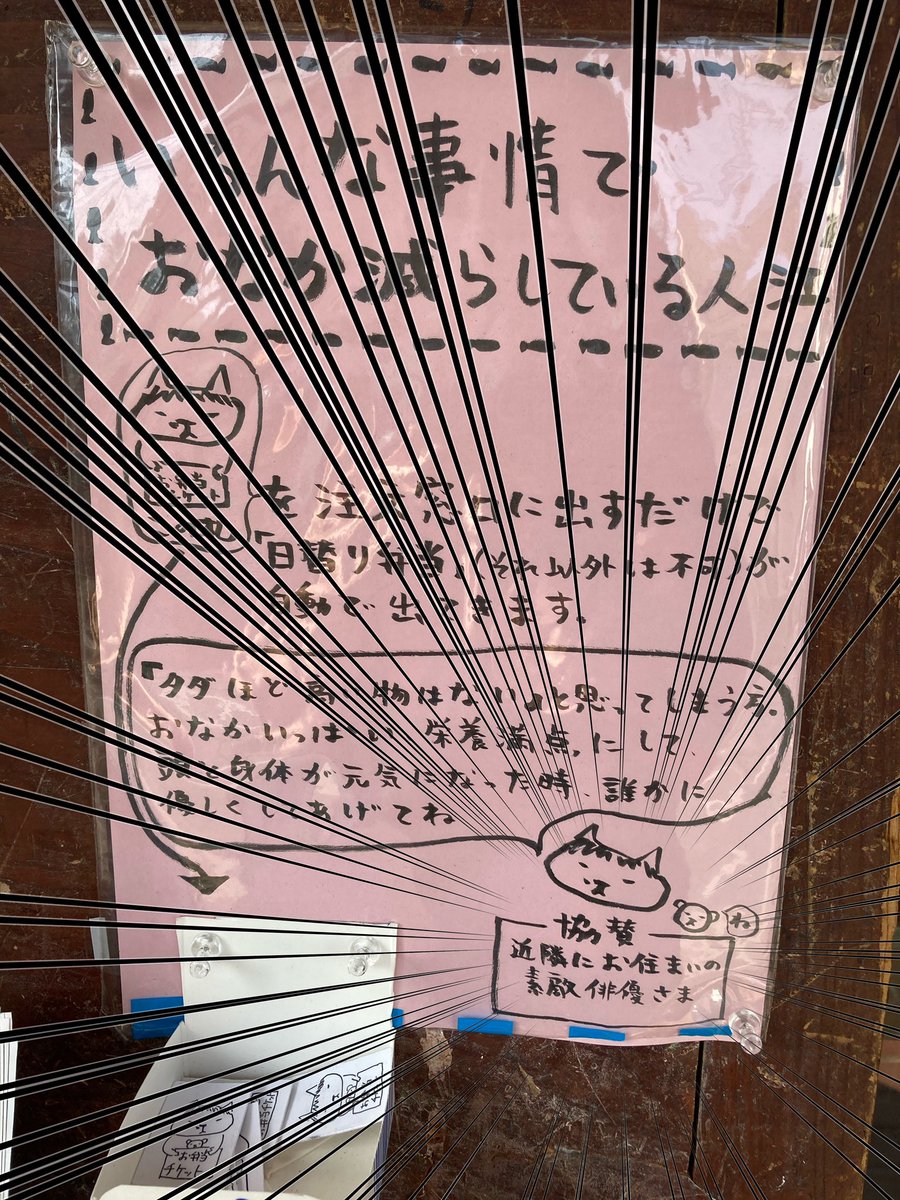 いろんな事情で
おなか減らしている人江
を注文窓口に出すだけで
「日替り弁当」(それ以外は不可)が
自動で出てきます。
「タダほど高い物はない」と思ってしまう方。
おなかいっぱい、栄養満点、にして、
頭と身体が元気になった時、誰かに
優しくしてあげてね
ね
協賛
近隣にお住まいの
素敵俳優さま
お弁当
チケット